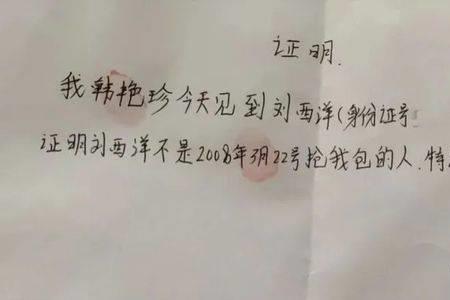 证明.
我韩艳珍今天见到刘西洋(身份证号
证明刘西洋不是2008年3月22号抢我包的人.特